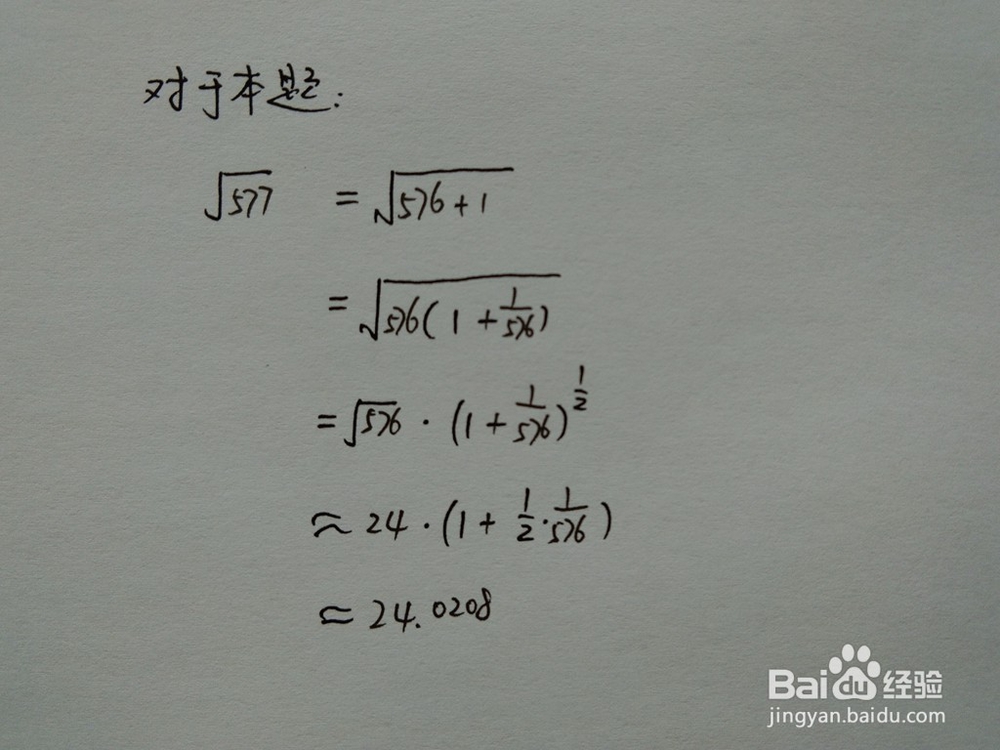 对于本题:
√577 = √(576+1)
= √(576(1+1/576))
= √576 · (1+1/576)^(1/2)
≈ 24 · (1+1/2·1/576)
≈ 24.0208
Baidu经验
jingyan.baidu.com